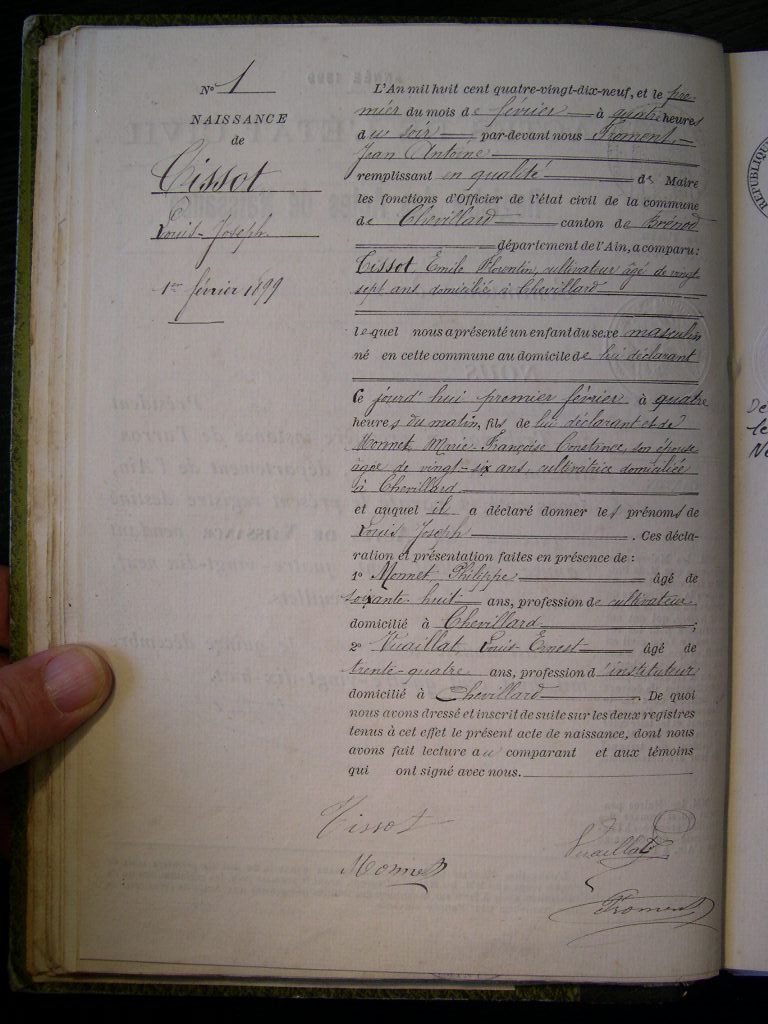 N° 1
NAISSANCE
de
Tissot
Louis-Joseph
1er février 1899
L'An mil huit cent quatre-vingt-dix-neuf, et le pre-
mier du mois de février à quatre heures
du soir par-devant nous Froment,
Jean Antoine
remplissant en qualité de Maire
les fonctions d'Officier de l'état civil de la commune
de Chevillard canton de Brénod
départment de l'Ain, a comparu:
Tissot, Emile Florentin, cultivateur âgé de vingt
sept ans domicilié à Chevillard
lequel nous a présenté un enfant du sexe masculin
né en cette commune au domicile de lui déclarant
Ce jourd'hui premier février à quatre
heures du matin, fils de lui déclarant et de
Monnet Marie-Françoise Constance, son épouse
âgée de vingt-six ans, cultivatrice domiciliée
à Chevillard
et auquel il a déclaré donner les prénoms de
Louis Joseph. Ces décla-
ration et présentation faites en présence de :
1° Monnet Philippe âgé de
soixante-huit ans, profession de cultivateur
domicilié à Chevillard ;
2° Vuaillat Louis Ernest âgé de
trente-quatre ans, profession d'instituteur
domicilié à Chevillard. De quoi
nous avons dressé et inscrit de suite sur les deux registres
tenus à cet effet le présent acte de naissance, dont nous
avons fait lecture au comparant et aux témoins
qui ont signé avec nous.
Tissot
Vuaillat
Monnet
Froment
RÉPUBLIQUE
De
le
N